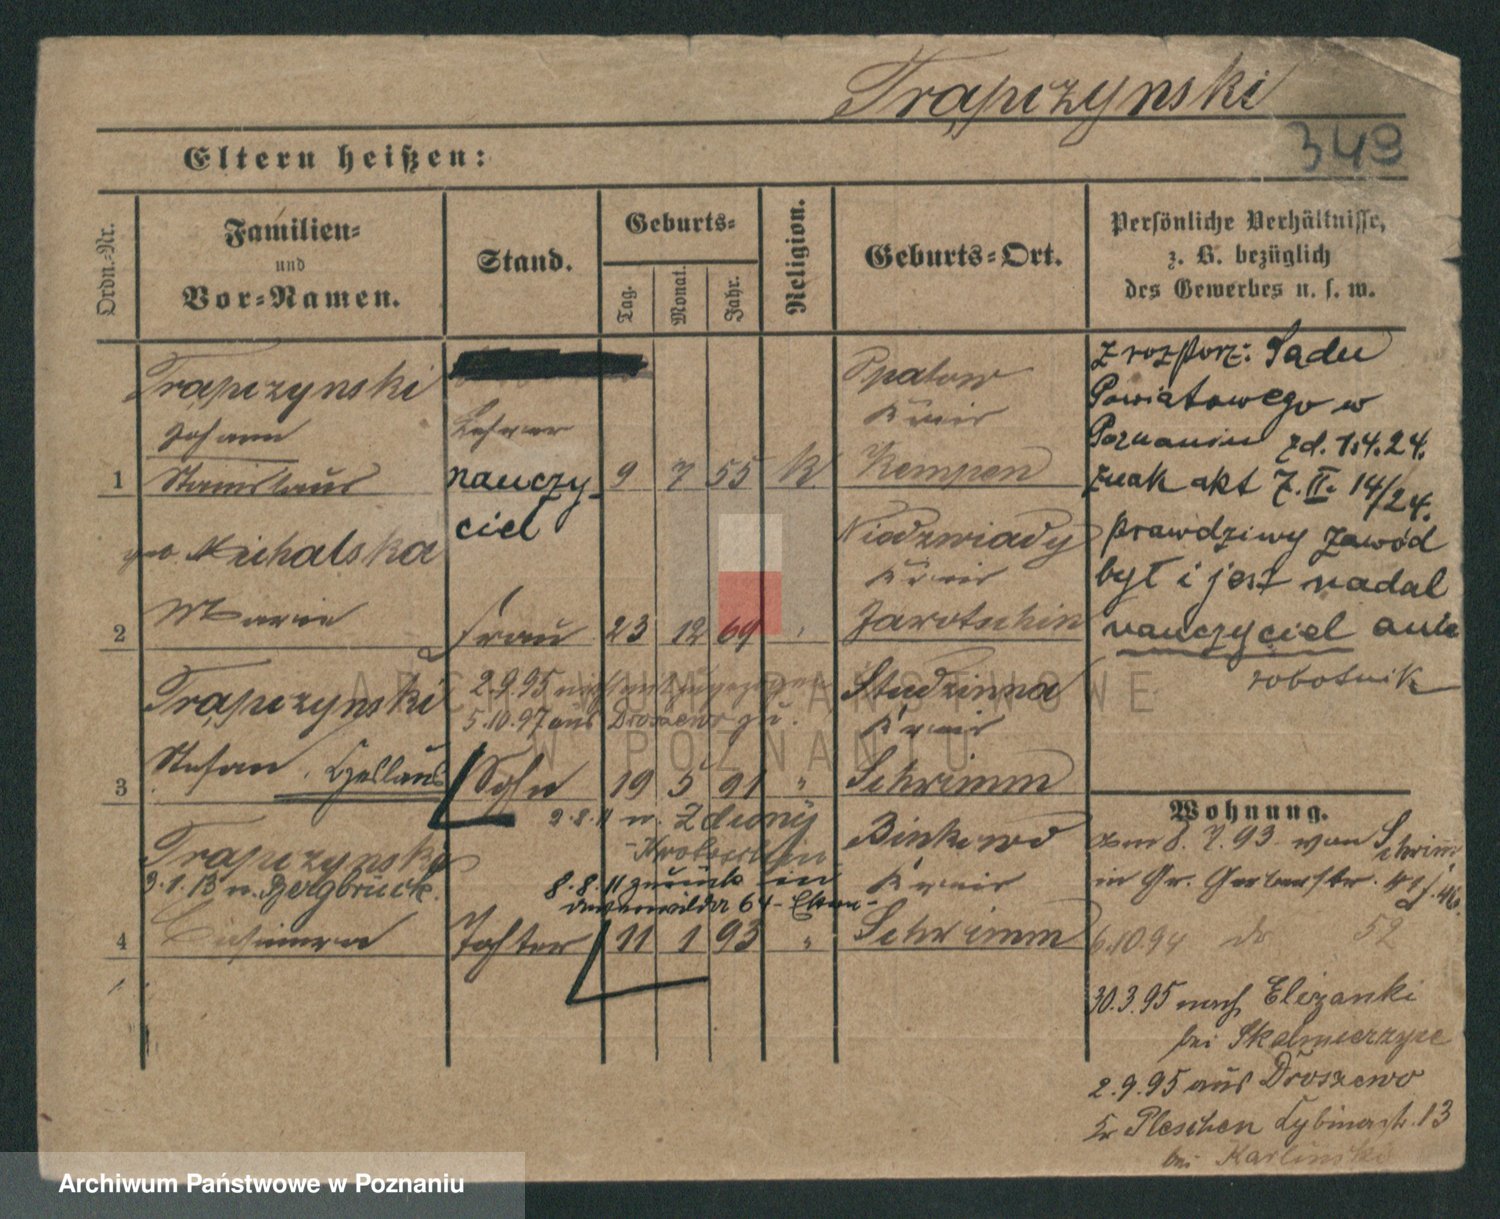 Trąpczynski
349
Eltern heißen:
Ordn.-Nr.
Familien-
und
Vor-Namen.
Stand.
Geburts-
Tag.
Monat.
Jahr.
Religion.
Geburts-Ort.
Persönliche Verhältnisse,
z. B. bezüglich
des Gewerbes u. s. w.
Trąpczynski
Johann
1 Stanislaus
Lehrer
nauczy-
ciel
9 7 55 k
Opatow
Kreis
Kempen
z rozporz: Sądu
Powiatowego w
Poznaniu zd. 1.4.24.
znak akt 7. II. 14/24.
prawdziwy zawód
był i jest nadal
nauczyciel a nie
robotnik
geb. Michalska
2 Marie Frau 23 12 69 "
Niedzwiady
Kreis
Jarotschin
Trąpczynski
2.9.95
5.10.97 aus Droszewo zu.
3 Stefan Sohn 19 5 91 "
Studzinna
Kreis
Schrimm
2.8.11 n. Zduny
Krotoschin
8.8.11 zurück in
64
Trąpczynski
3.1.13 n. Bergbruck.
4 Casimira Tochter 11 1 93 "
Binkowo
Kreis
Schrimm
Wohnung.
am 8.7.93 von Schrimm
in Gr. Gerberstr. 41
6.10.94 do 52
30.3.95 nach Elizanki
bei Skalmierzyce
2.9.95 aus Droszewo
Kr Pleschen 13
bei Karlinski
ARCHIWUM PAŃSTWOWE
W POZNANIU
Archiwum Państwowe w Poznaniu